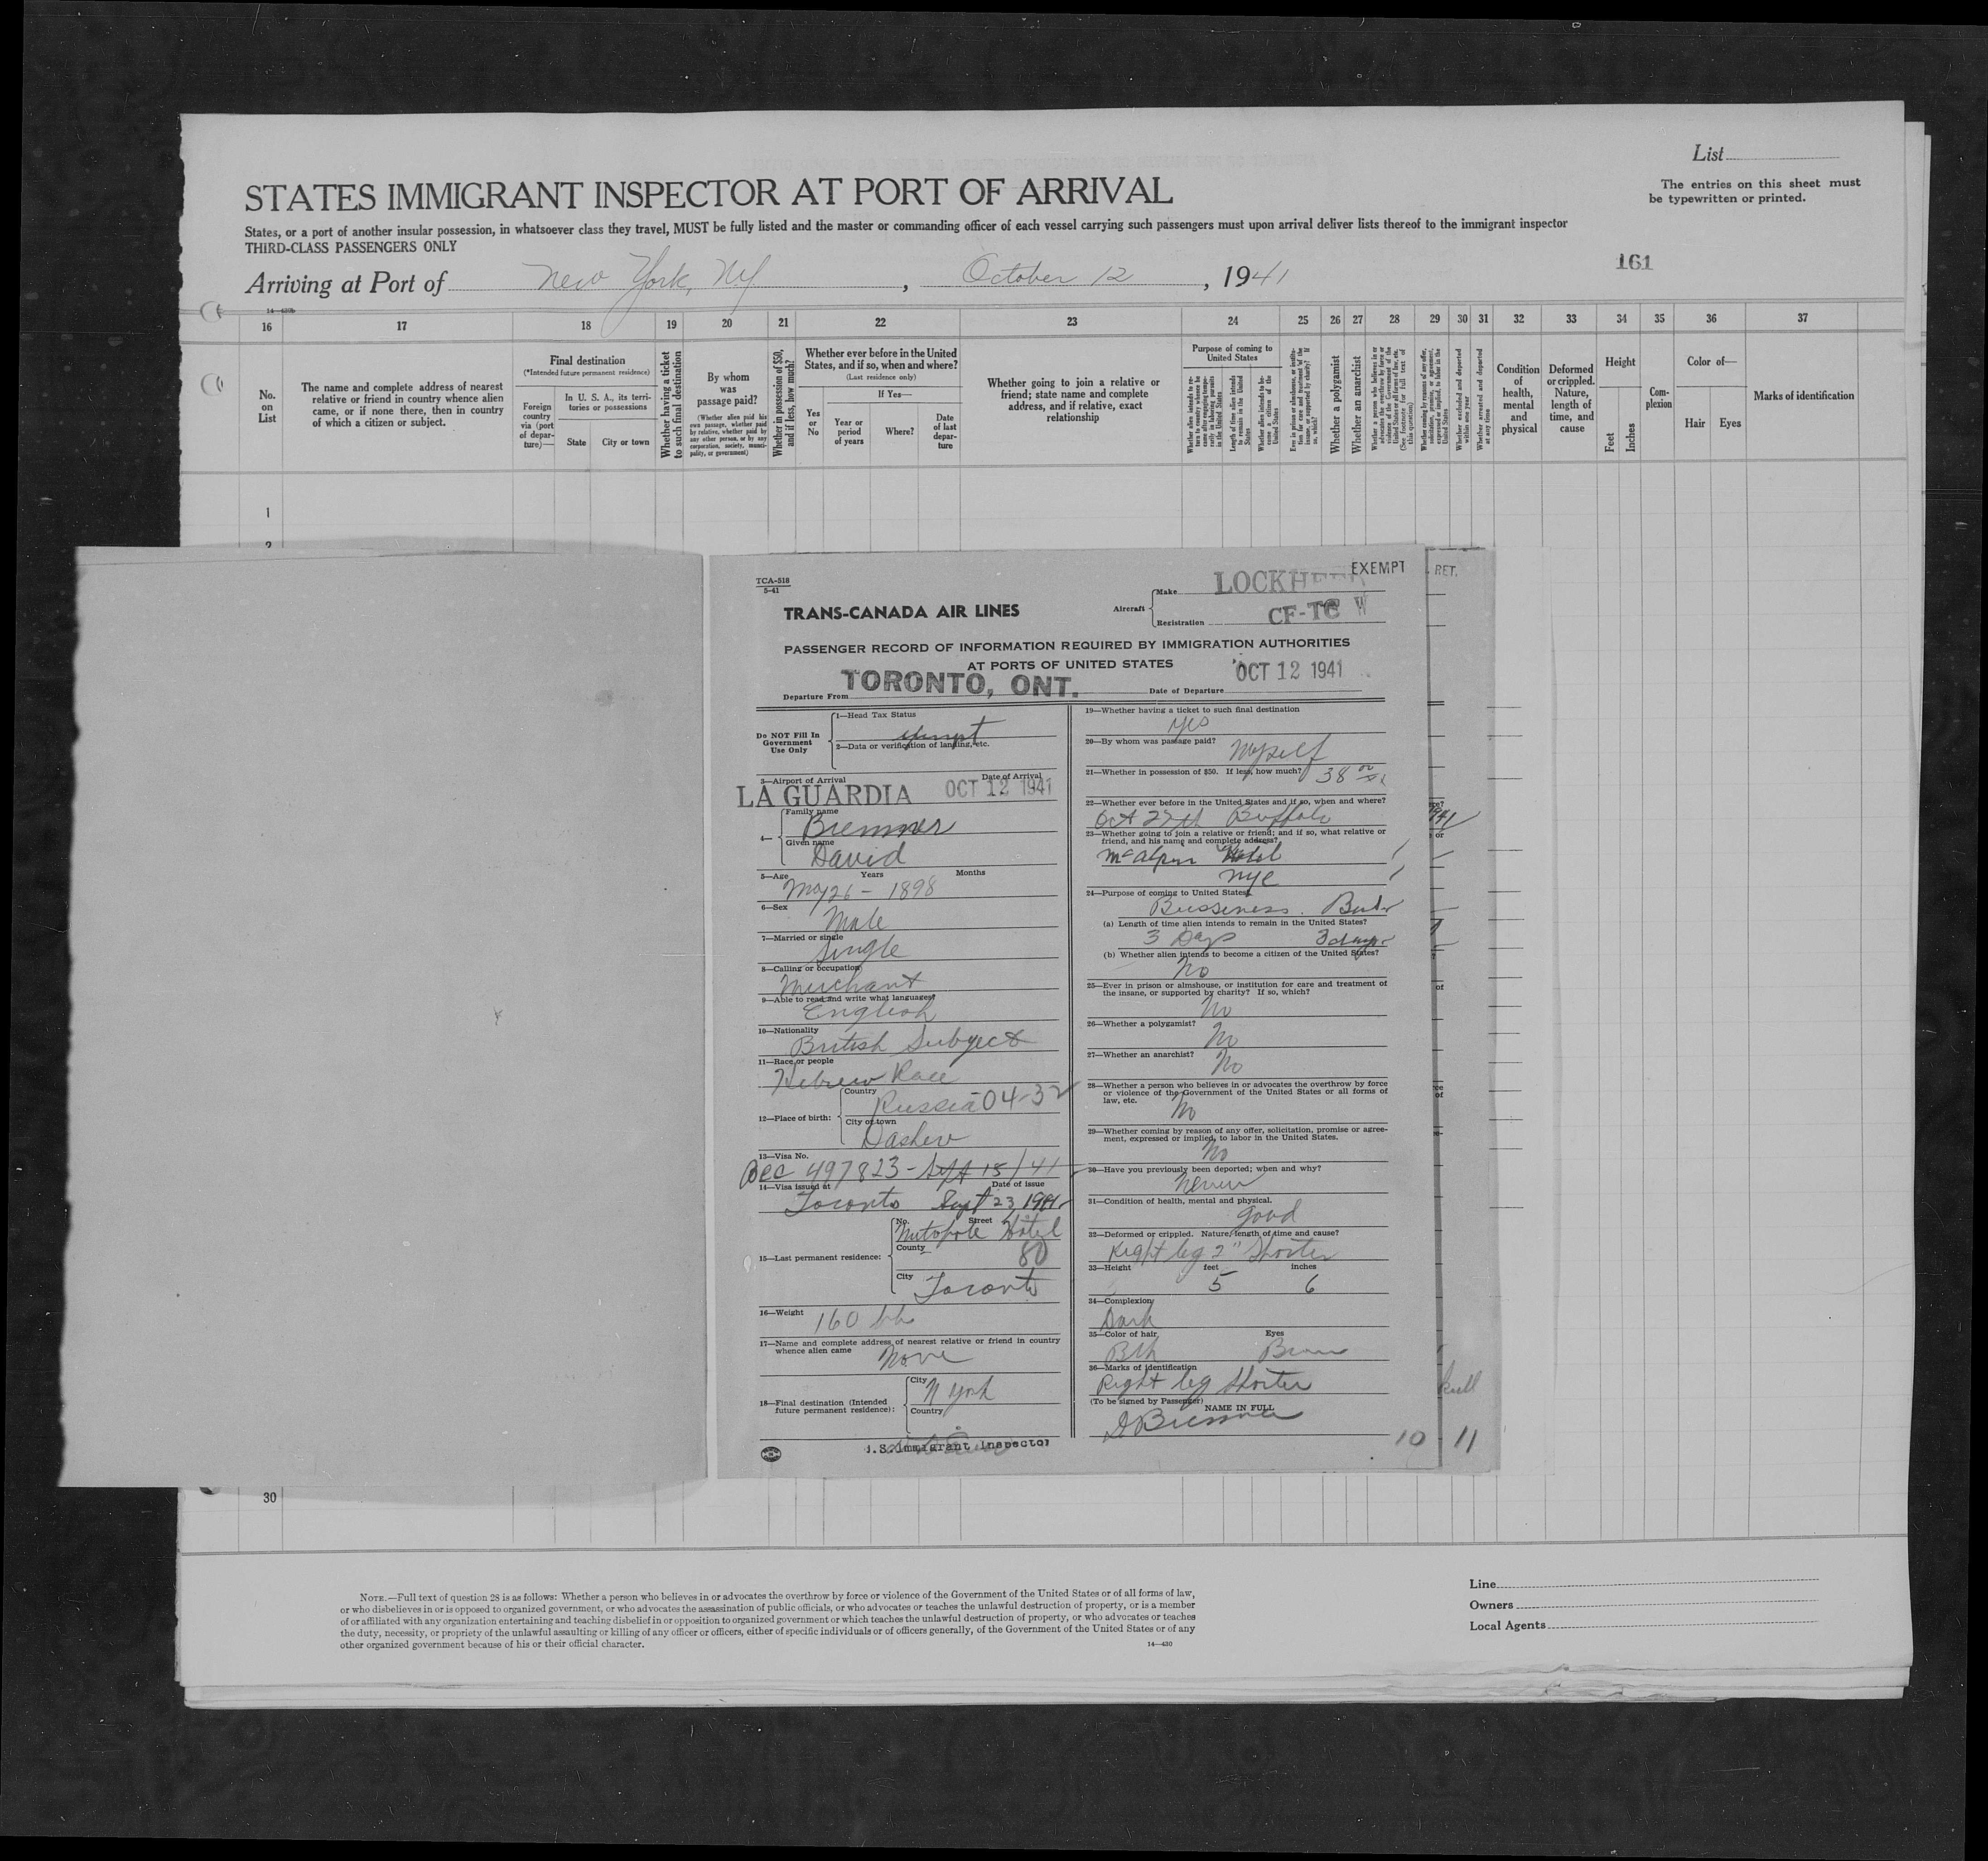 List
The entries on this sheet must
be typewritten or printed.
STATES IMMIGRANT INSPECTOR AT PORT OF ARRIVAL
States, or a port of another insular possession, in whatsoever class they travel, MUST be fully listed and the master or commanding officer of each vessel carrying such passengers must upon arrival deliver lists thereof to the immigrant inspector
THIRD-CLASS PASSENGERS ONLY
161
Arriving at Port of New York, NY, October 12, 1941
14—430b
16 17 18 19 20 21 22 23 24 25 26 27 28 29 30 31 32 33 34 35 36 37
No.
on
List
The name and complete address of nearest
relative or friend in country whence alien
came, or if none there, then in country
of which a citizen or subject.
Final destination
(*Intended future permanent residence)
Foreign
country
via (port
of depar-
ture)—
In U. S. A., its terri-
tories or possessions
State
City or town
Whether having a ticket
to such final destination
By whom
was
passage paid?
(Whether alien paid his
own passage, whether paid
by relative, whether paid by
any other person, or by any
corporation, society, munici-
pality, or government)
Whether in possession of $50,
and if less, how much?
Whether ever before in the United
States, and if so, when and where?
(Last residence only)
Yes
or
No
If Yes—
Year or
period
of years
Where?
Date
of last
depar-
ture
Whether going to join a relative or
friend; state name and complete
address, and if relative, exact
relationship
Purpose of coming to
United States
Length of time alien intends
to remain in the United
States
Whether alien intends to be-
come a citizen of the
United States
Whether a polygamist
Whether an anarchist
Whether excluded and deported
within one year
Whether arrested and deported
at any time
Condition
of
health,
mental
and
physical
Deformed
or crippled.
Nature,
length of
time, and
cause
Height
Feet
Inches
Com-
plexion
Color of—
Hair
Eyes
Marks of identification
1
2
TCA-518
5-41
TRANS-CANADA AIR LINES
Aircraft
Make LOCKHEED
EXEMPT
RET.
Registration CF-TC W
PASSENGER RECORD OF INFORMATION REQUIRED BY IMMIGRATION AUTHORITIES
AT PORTS OF UNITED STATES
Departure From TORONTO, ONT.
Date of Departure OCT 12 1941
Do NOT Fill In
Government
Use Only
1—Head Tax Status
exempt
2—Data or verification of landing, etc.
3—Airport of Arrival Date of Arrival
LA GUARDIA OCT 12 1941
4—
Family name
Bremner
Given name
David
5—Age Years Months
May 26 - 1898
6—Sex
Male
7—Married or single
Single
8—Calling or occupation
Merchant
9—Able to read and write what languages?
English
10—Nationality
British Subject
11—Race or people
Hebrew Race
12—Place of birth:
Country
Russia 04-32
City or town
Dashew
13—Visa No.
BCC 497823 - Sept 15/41
14—Visa issued at Date of issue
Toronto Sept 23, 1941
15—Last permanent residence:
No. Street
Metropole Hotel
County
80
City
Toronto
16—Weight
160 lbs
17—Name and complete address of nearest relative or friend in country
whence alien came
None
18—Final destination (Intended
future permanent residence):
City
N York
Country
U.S. Immigrant Inspector
19—Whether having a ticket to such final destination
yes
20—By whom was passage paid?
Myself
21—Whether in possession of $50. If less, how much? 38
22—Whether ever before in the United States and if so, when and where?
Oct 27th Buffalo
1941
23—Whether going to join a relative or friend; and if so, what relative or
friend, and his name and complete address?
McAlpin Hotel
NYC
24—Purpose of coming to United States
Bussiness.
(a) Length of time alien intends to remain in the United States?
3 Days 3 days
(b) Whether alien intends to become a citizen of the United States?
No
25—Ever in prison or almshouse, or institution for care and treatment of
the insane, or supported by charity? If so, which?
No
26—Whether a polygamist?
No
27—Whether an anarchist?
No
28—Whether a person who believes in or advocates the overthrow by force
or violence of the Government of the United States or all forms of
law, etc.
No
29—Whether coming by reason of any offer, solicitation, promise or agree-
ment, expressed or implied, to labor in the United States.
No
30—Have you previously been deported; when and why?
Never
31—Condition of health, mental and physical.
good
32—Deformed or crippled. Nature, length of time and cause?
Right leg 2" Shorter
33—Height feet inches
5 6
34—Complexion
Dark
35—Color of hair Eyes
Blk Brown
36—Marks of identification
Right leg Shorter
(To be signed by Passenger)
NAME IN FULL
D Bremner
10
11
30
NOTE.—Full text of question 28 is as follows: Whether a person who believes in or advocates the overthrow by force or violence of the Government of the United States or of all forms of law,
or who disbelieves in or is opposed to organized government, or who advocates the assassination of public officials, or who advocates or teaches the unlawful destruction of property, or is a member
of or affiliated with any organization entertaining and teaching disbelief in or opposition to organized government or which teaches the unlawful destruction of property, or who advocates or teaches
the duty, necessity, or propriety of the unlawful assaulting or killing of any officer or officers, either of specific individuals or of officers generally, of the Government of the United States or of any
other organized government because of his or their official character.
14—430
Line
Owners
Local Agents